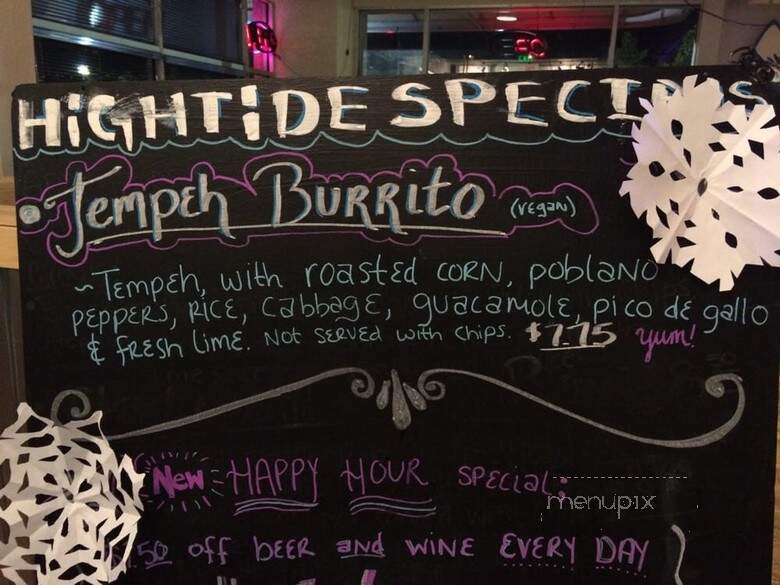 HiGHTiDE SPECI
• Tempeh Burrito (vegan)
~ Tempeh, with roasted corn, poblano
peppers, rice, cabbage, guacamole, pico de gallo
& fresh lime. Not served with chips. $7.75 yum!
New HAPPY HOUR special:
menupix
.50 off beer and wine EVERY DAY